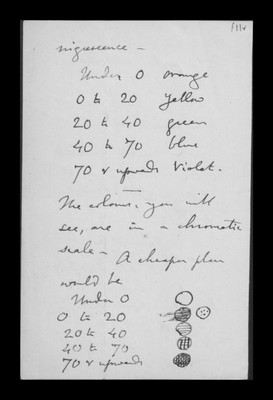 f11v
nigrescence –
Under 0 orange
0 to 20 yellow
20 to 40 green
40 to 70 blue
70 & upwards Violet.
The colours, you will
see, are in a chromatic
scale – A cheaper plan
would be
Under 0
0 to 20
20 to 40
40 to 70
70 & upwards